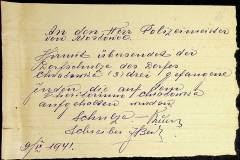 An den Herr Polizeimeister
von Mostowie
Hiermit übersendet der
Dorfschulze des Dorfes
Chodowie (3) drei gefangene
juden die auf dem
Territorium Chodowie
aufgehalten wurden
Schulze
Schreiber
9/II 1941.